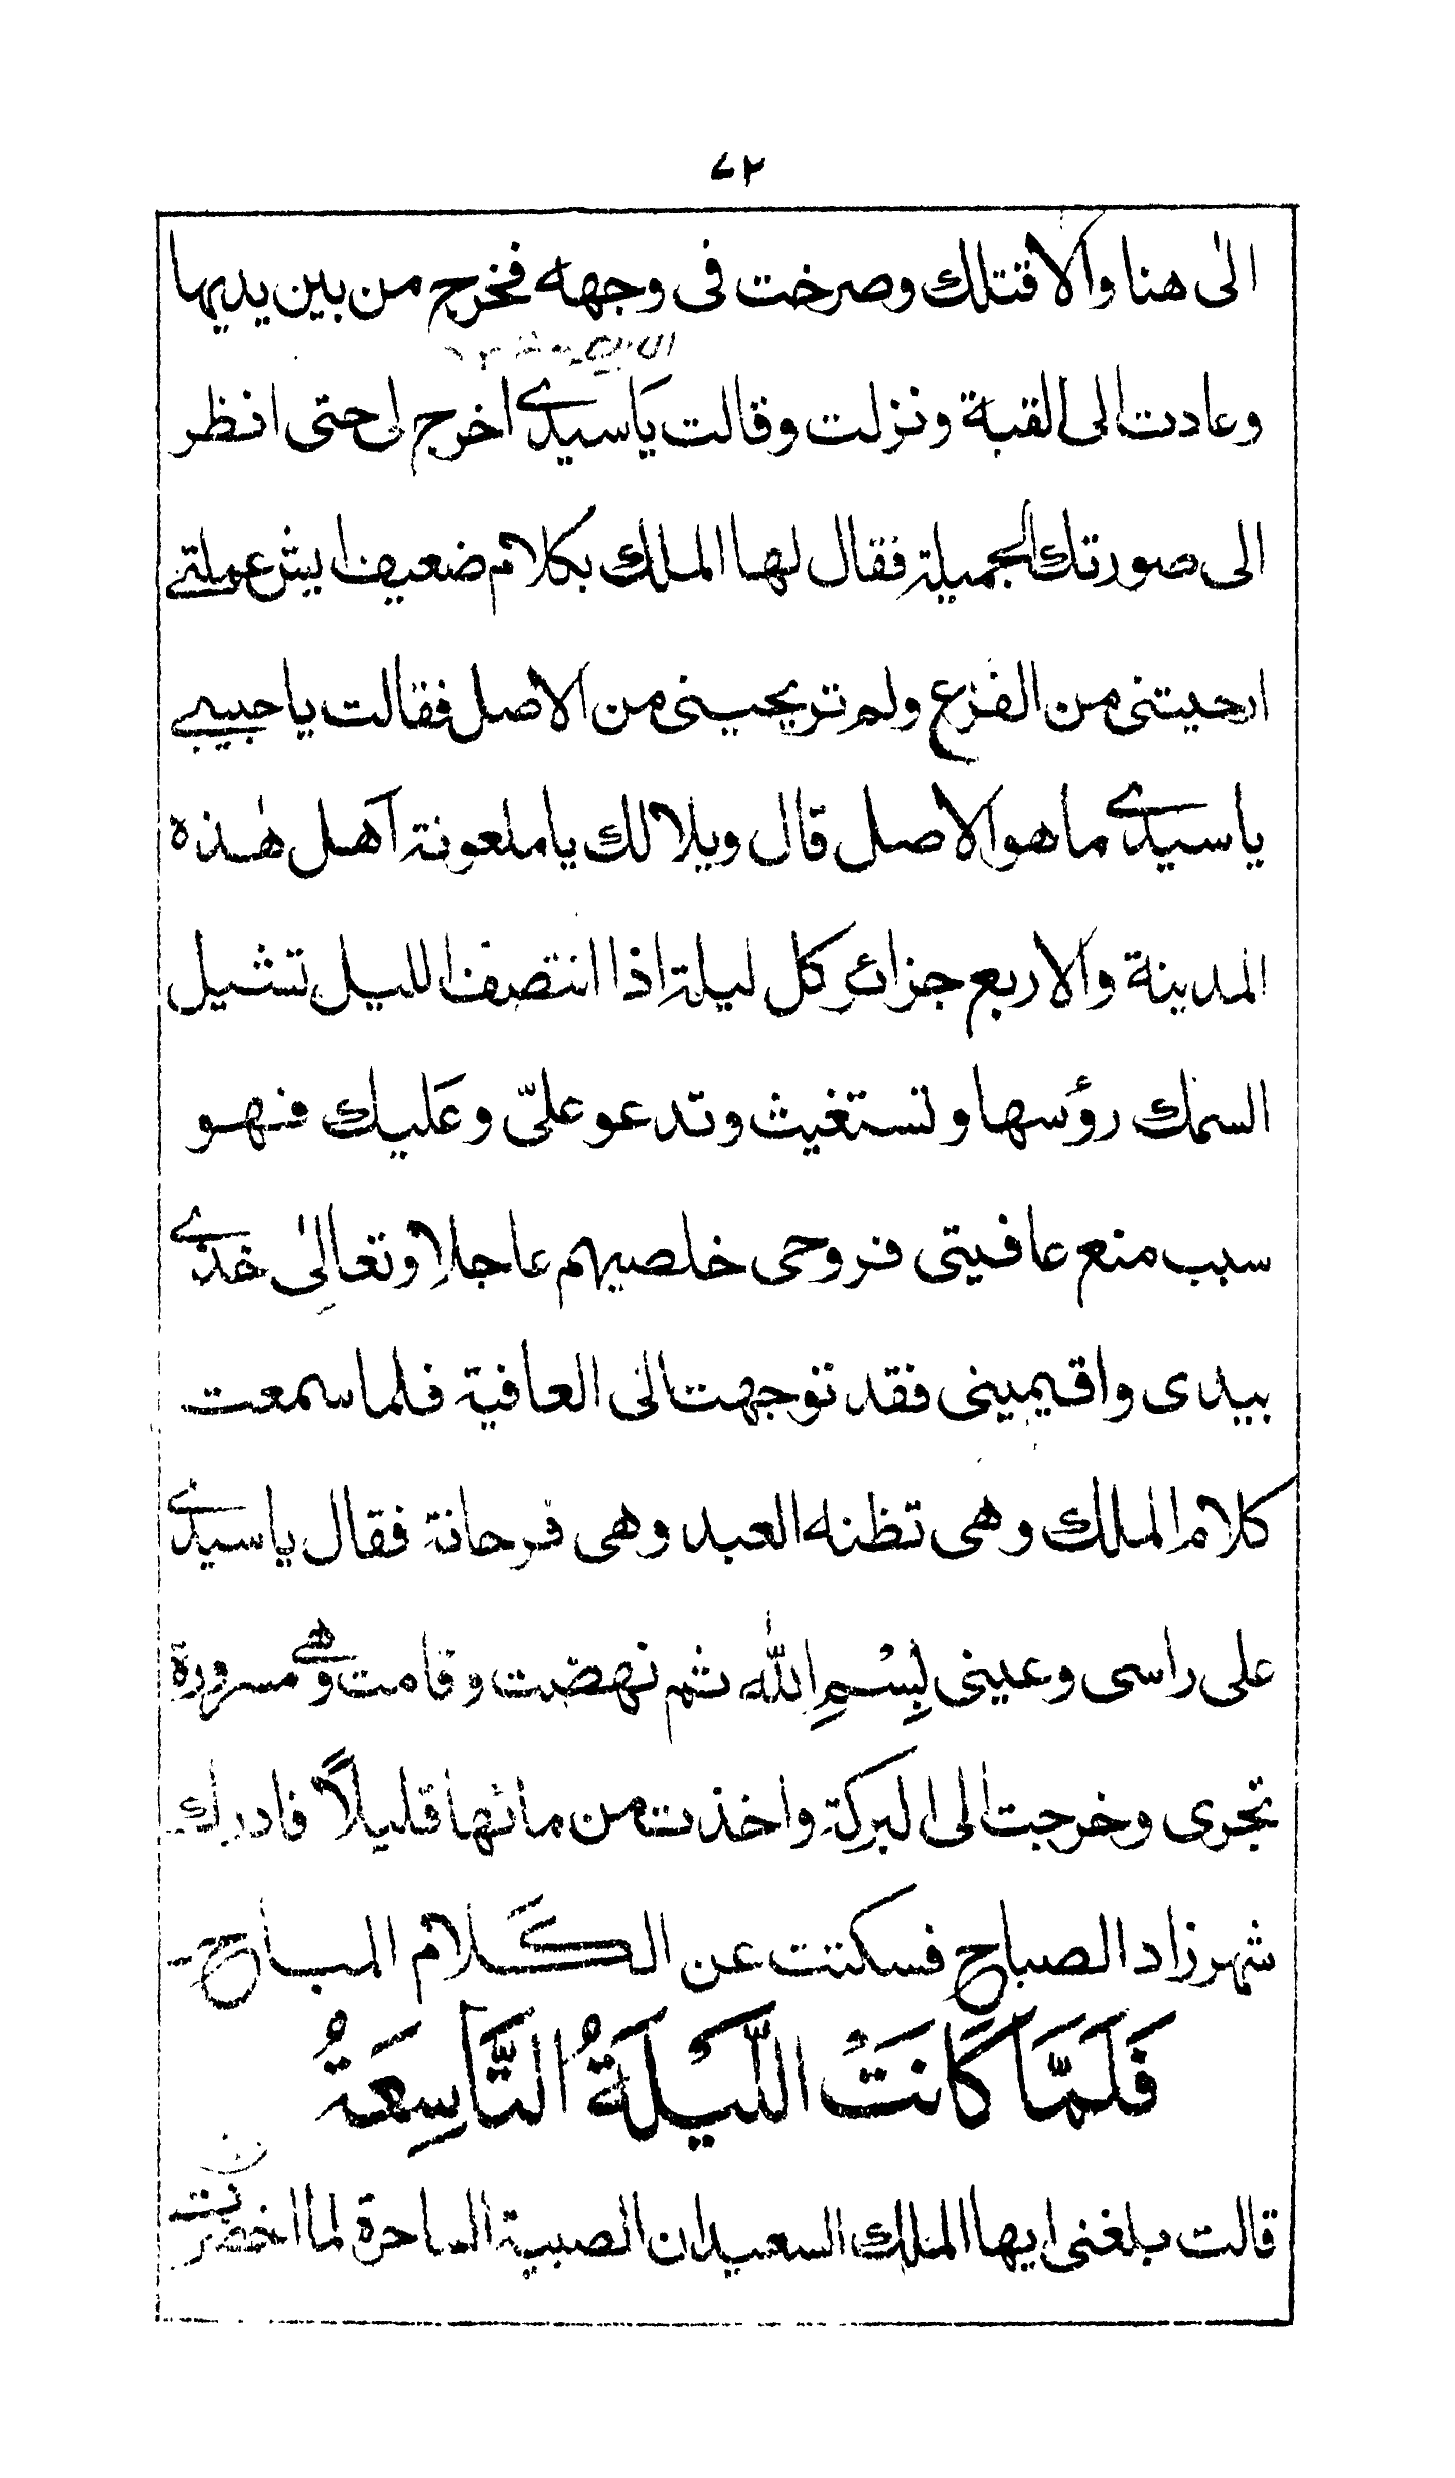 ٧٢
الىٰ هنا والا قتلك وصرخت فى وجهه فخرج من بين يديها
وعادت الى القبة ونزلت وقالت يَاسيدى اخرج لى حتى انظر
الى صورتك الجميلة فقال لها الملك بكلام ضعيف ايش عملتى
ارحيتنى من الفزع ولم تريحينى من الاصل فقالت ياحبيبى
ياسيدى ماهو الاصل قال ويلا لك ياملعونة آهل هٰذه
المدينة والاربع جزائر كل ليلة اذا انتصف الليل تشيل
السمك رؤسها وتستغيث وتدعو علىّ وعَليك فنهو
سبب منع عافيتى فروحى خلصيهم عاجلا وتعالِىٰ خذى
بيدى واقيمينى فقد توجهت الى العافية فلما سمعت
كلام الملك وهى تظنه العبد وهى فرحانة فقال ياسيدى
على راسى وعينى بِسْمِ اللّٰه ثم نهضت وقامت وهى مسرورة
تجرى وخرجت الى البركة واخذت من مائها قليلاً فادرك
شهرزاد الصباح فسكتت عن الكلام المباح
فَلَمَّا كَانَتْ اللَّيْلَةُ التَّاسِعَةُ
قالت بلغنى ايها الملك السعيد ان الصبية الساحرة لما اخضرت